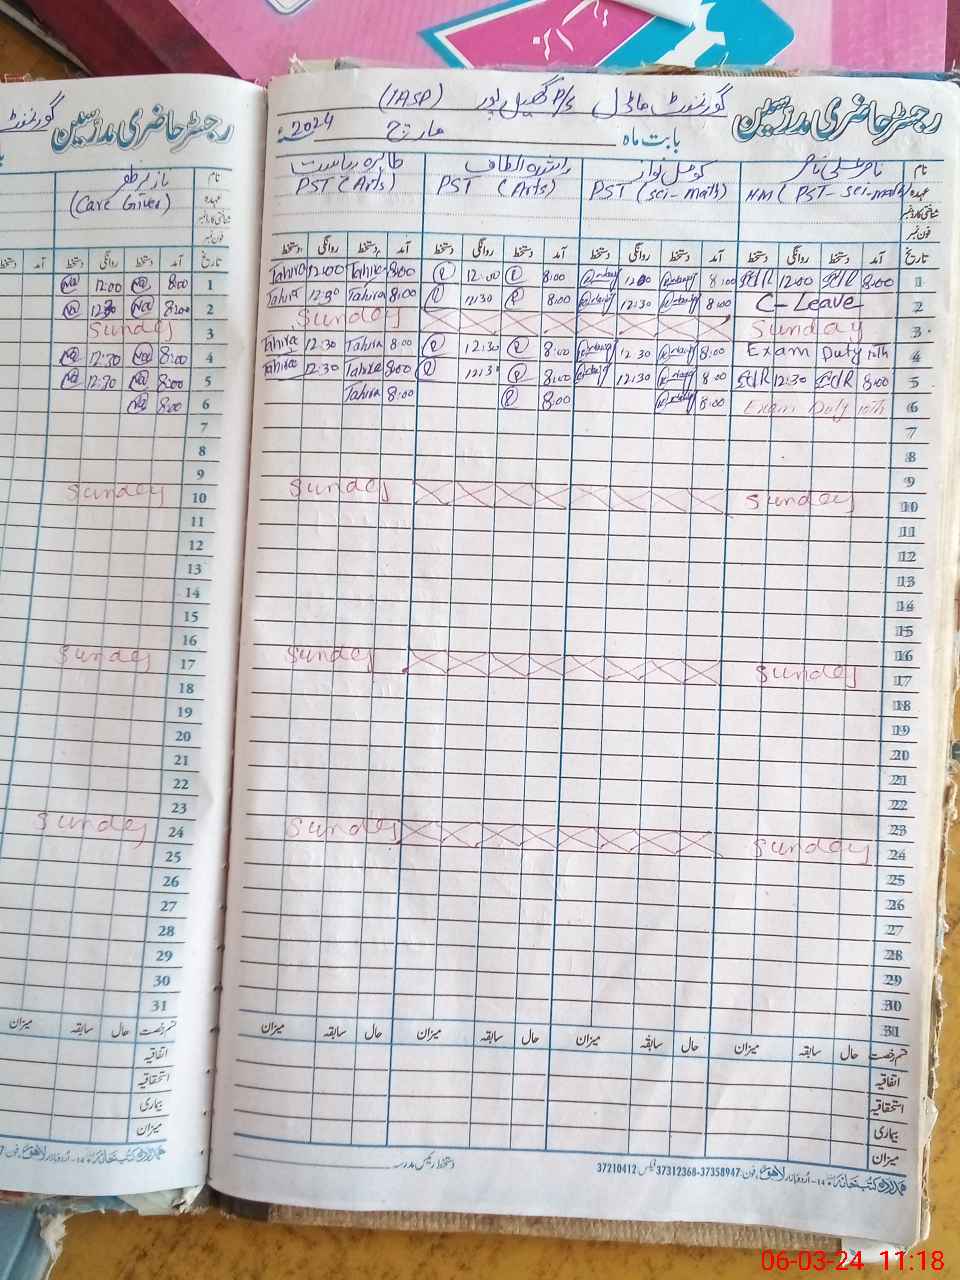 رجسٹر حاضری مدرسین
گورنمنٹ ماڈل P/S گھیل پور (IASP)
بابت ماہ مارچ 2024ء
نام
کومل نواز
راشدہ الطاف
طاہرہ ریاست
عہدہ HM (PST-Sci-math) PST (Sci-math) PST (Arts) PST (Arts)
شناختی کارڈ نمبر
فون نمبر
تاریخ آمد دستخط روانگی دستخط آمد دستخط روانگی دستخط آمد دستخط روانگی دستخط آمد دستخط روانگی دستخط
1 8:00 12:00 8:00 12:00 8:00 12:00 8:00 Tahira 12:00 Tahira
2 C-Leave 8:00 12:30 8:00 12:30 8:00 Tahira 12:30 Tahira
3 Sunday Sunday
4 Exam Duty 10th 8:00 12:30 8:00 12:30 8:00 Tahira 12:30 Tahira
5 8:00 12:30 8:00 12:30 8:00 12:30 8:00 Tahira 12:30 Tahira
6 Exam Duty 10th 8:00 8:00 8:00 Tahira
7
8
9
10 Sunday Sunday
11
12
13
14
15
16
17 Sunday Sunday
18
19
20
21
22
23
24 Sunday Sunday
25
26
27
28
29
30
31
قسم رخصت حال سابقہ میزان حال سابقہ میزان حال سابقہ میزان حال سابقہ میزان
اتفاقیہ
استحقاقیہ
بیماری
میزان
دستخط رئیس مدرسہ
ہمدرد کتب خانہ 14-اردو بازار لاہور فون: 37358947-37312368 فیکس 37210412
رجسٹر حاضری مدرسین
گورنمنٹ
نام
عہدہ (Care Giver)
شناختی کارڈ نمبر
فون نمبر
تاریخ آمد دستخط روانگی دستخط آمد دستخط
1 8:00 Na 12:00 Na
2 8:00 Na 12:30 Na
3 Sunday
4 8:00 Na 12:30 Na
5 8:00 Na 12:30 Na
6 8:00 Na
7
8
9
10 Sunday
11
12
13
14
15
16
17 Sunday
18
19
20
21
22
23
24 Sunday
25
26
27
28
29
30
31
قسم رخصت حال سابقہ میزان
اتفاقیہ
استحقاقیہ
بیماری
میزان
ہمدرد کتب خانہ 14-اردو بازار لاہور فون:
06-03-24 11:18